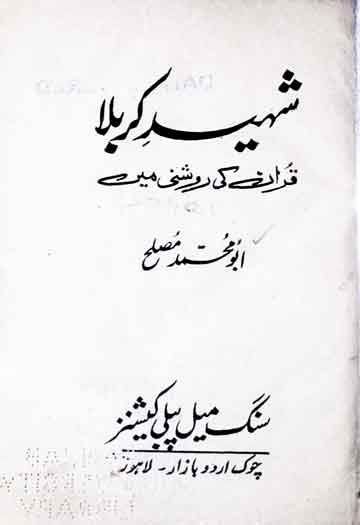 شہیدِ کربلا
قرآن کی روشنی میں
ابو محمد مصلح
سنگ میل پبلی کیشنز
چوک اردو بازار - لاہور